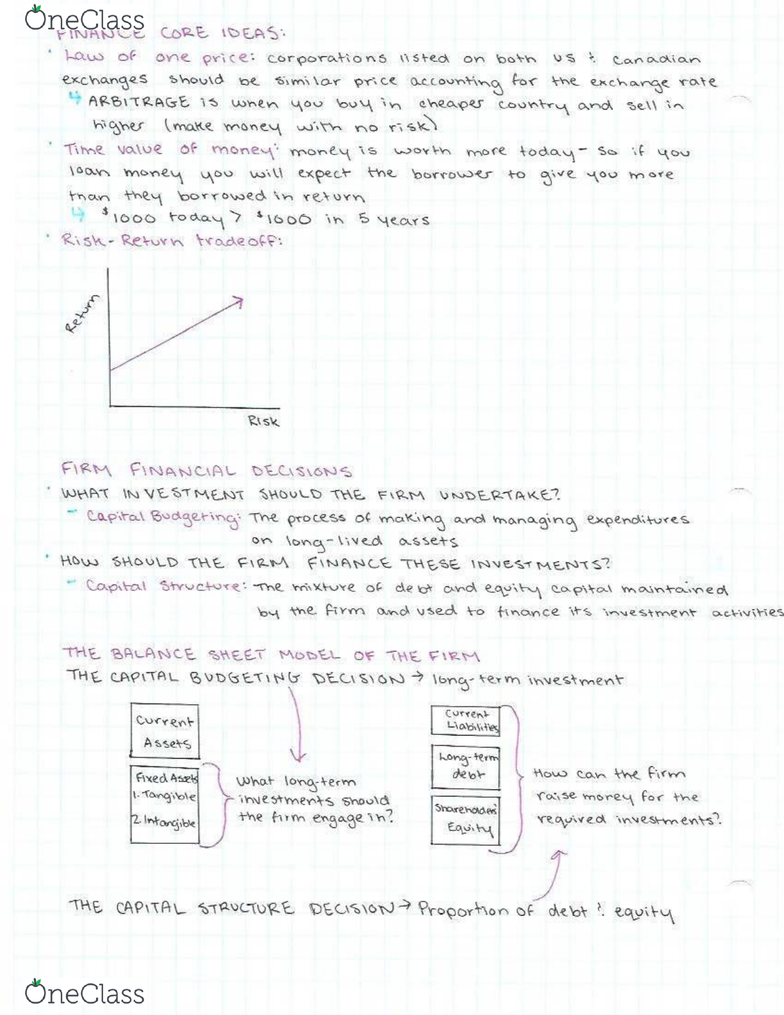 OneClass
FINANCE CORE IDEAS:
Law of one price: corporations listed on both US & Canadian
exchanges should be similar price accounting for the exchange rate
↳ ARBITRAGE is when you buy in cheaper country and sell in
higher (make money with no risk)
Time value of money: money is worth more today - so if you
loan money you will expect the borrower to give you more
than they borrowed in return
↳ $1000 today > $1000 in 5 years
Risk-Return tradeoff:
Return
Risk
FIRM FINANCIAL DECISIONS
WHAT INVESTMENT SHOULD THE FIRM UNDERTAKE?
- Capital Budgeting: The process of making and managing expenditures
on long-lived assets
HOW SHOULD THE FIRM FINANCE THESE INVESTMENTS?
- Capital Structure: The mixture of debt and equity capital maintained
by the firm and used to finance its investment activities
THE BALANCE SHEET MODEL OF THE FIRM
THE CAPITAL BUDGETING DECISION → long-term investment
Current
Assets
Fixed Assets
1. Tangible
2. Intangible
What long-term
investments should
the firm engage in?
Current
Liabilities
Long-term
debt
Shareholders'
Equity
How can the firm
raise money for the
required investments?
THE CAPITAL STRUCTURE DECISION → Proportion of debt & equity
OneClass